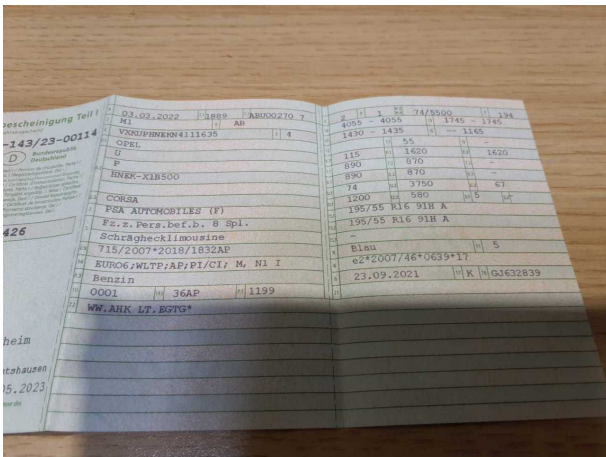 bescheinigung Teil I
-143/23-00114
D Bundesrepublik
Deutschland
426
heim
atshausen
05.2023
03.03.2022 1889 ABU00270 7
M1 AB
VXKUPHNEKN4111635 4
OPEL
U
P
HNEK-X1B500
CORSA
PSA AUTOMOBILES (F)
Fz.z.Pers.bef.b. 8 Spl.
Schräghecklimousine
715/2007*2018/1832AP
EURO6;WLTP;AP;PI/CI; M, N1 I
Benzin
0001 36AP 1199
WW.AHK LT.EGTG*
2 1 74/5500 194
4055 - 4055 1745 - 1745
1430 - 1435 -- 1165
55 -
115 1620 1620
890 870 -
890 870 -
74 3750 67
1200 580 5
195/55 R16 91H A
195/55 R16 91H A
-
Blau 5
e2*2007/46*0639*17
23.09.2021 K GJ632839